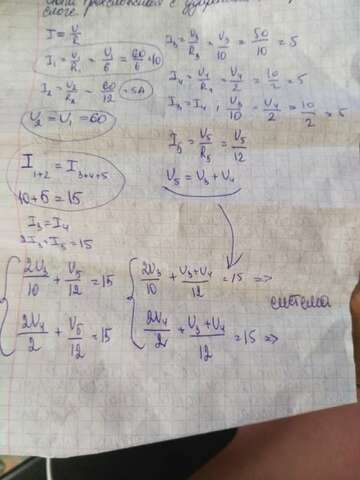 слоге
I = U/R
I₁ = U₁/R₁ = U₁/6 = 60/6 = 10
I₂ = U₂/R₂ = 60/12 = 5A
U₂ = U₁ = 60
I₁₊₂ = I₃₊₄₊₅
10+5 = 15
I₃ = I₄
2I₃ = I₅ = 15
{ 2U₃/10 + U₅/12 = 15
2U₄/2 + U₅/12 = 15
I₃ = U₃/R₃ = U₃/10 = 50/10 = 5
I₄ = U₄/R₄ = U₄/2 = 10/2 = 5
I₃ = I₄, U₃/10 = U₄/2 = 10/2 = 5
I₅ = U₅/R₅ = U₅/12
U₅ = U₃ + U₄
{ 2U₃/10 + U₃+U₄/12 = 15 =>
2U₄/2 + U₃+U₄/12 = 15 =>
система